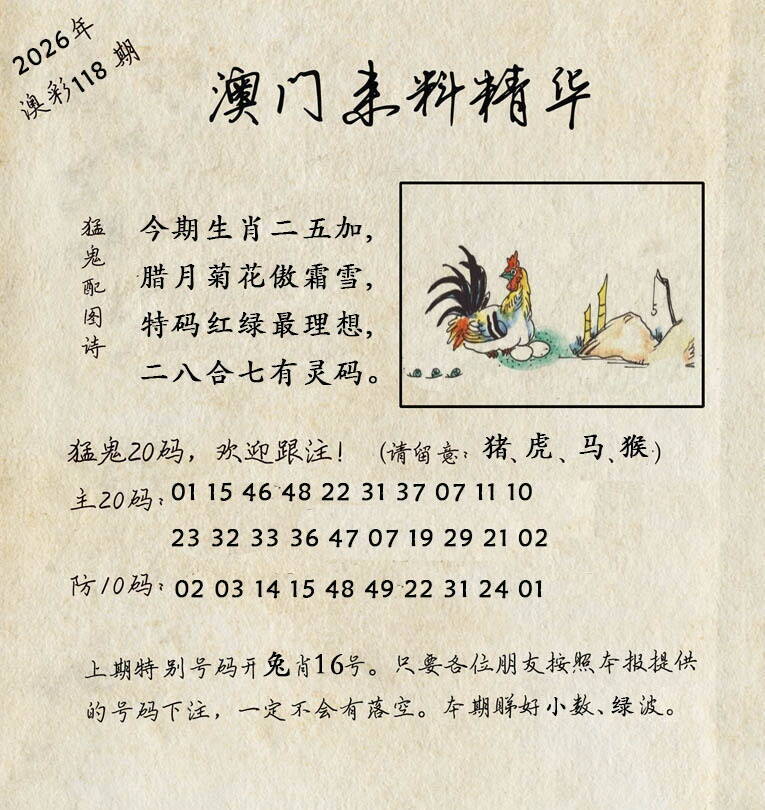 2026年
澳彩118期
澳门来料精华
猛鬼配图诗
今期生肖二五加，
腊月菊花傲霜雪，
特码红绿最理想，
二八合七有灵码。
5
猛鬼20码，欢迎跟注！（请留意：猪、虎、马、猴）
主20码：01 15 46 48 22 31 37 07 11 10
23 32 33 36 47 07 19 29 21 02
防10码：02 03 14 15 48 49 22 31 24 01
上期特别号码开兔肖16号。只要各位朋友按照本报提供
的号码下注，一定不会有落空。本期睇好小数、绿波。